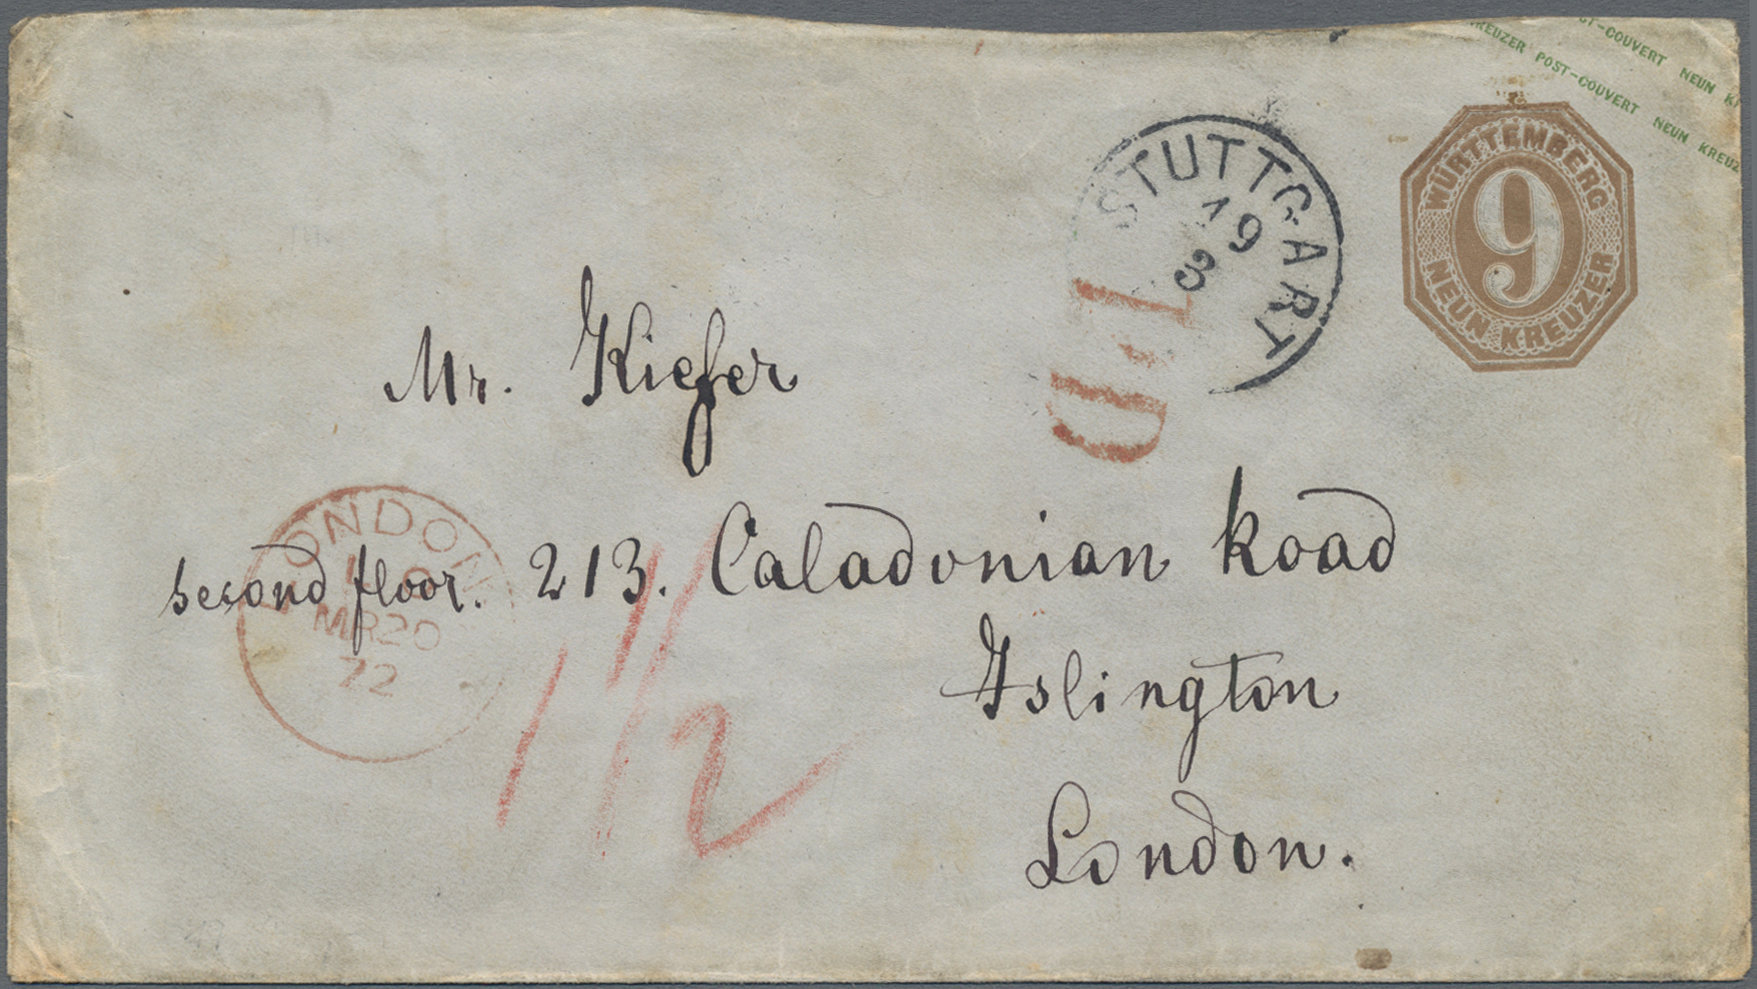 ST-COUVERT NEUN K
KREUZER POST-COUVERT NEUN KREUZ
WÜRTTEMBERG
9
NEUN KREUZER
STUTTGART
19
3
PD
Mr. Kiefer
LONDON
MR20
72
second floor. 213. Caladonian Road
1 1/2
Islington
London.